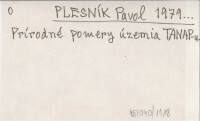 0
PLESNÍK Pavol 1979...
Prírodné pomery územia TANAP-u